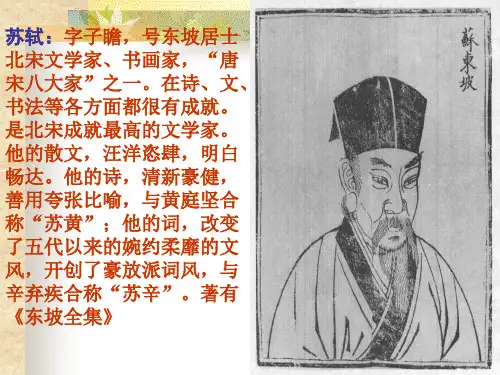 苏轼：字子瞻，号东坡居士
北宋文学家、书画家，“唐
宋八大家”之一。在诗、文、
书法等各方面都很有成就。
是北宋成就最高的文学家。
他的散文，汪洋恣肆，明白
畅达。他的诗，清新豪健，
善用夸张比喻，与黄庭坚合
称“苏黄”；他的词，改变
了五代以来的婉约柔靡的文
风，开创了豪放派词风，与
辛弃疾合称“苏辛”。著有
《东坡全集》
蘇東坡